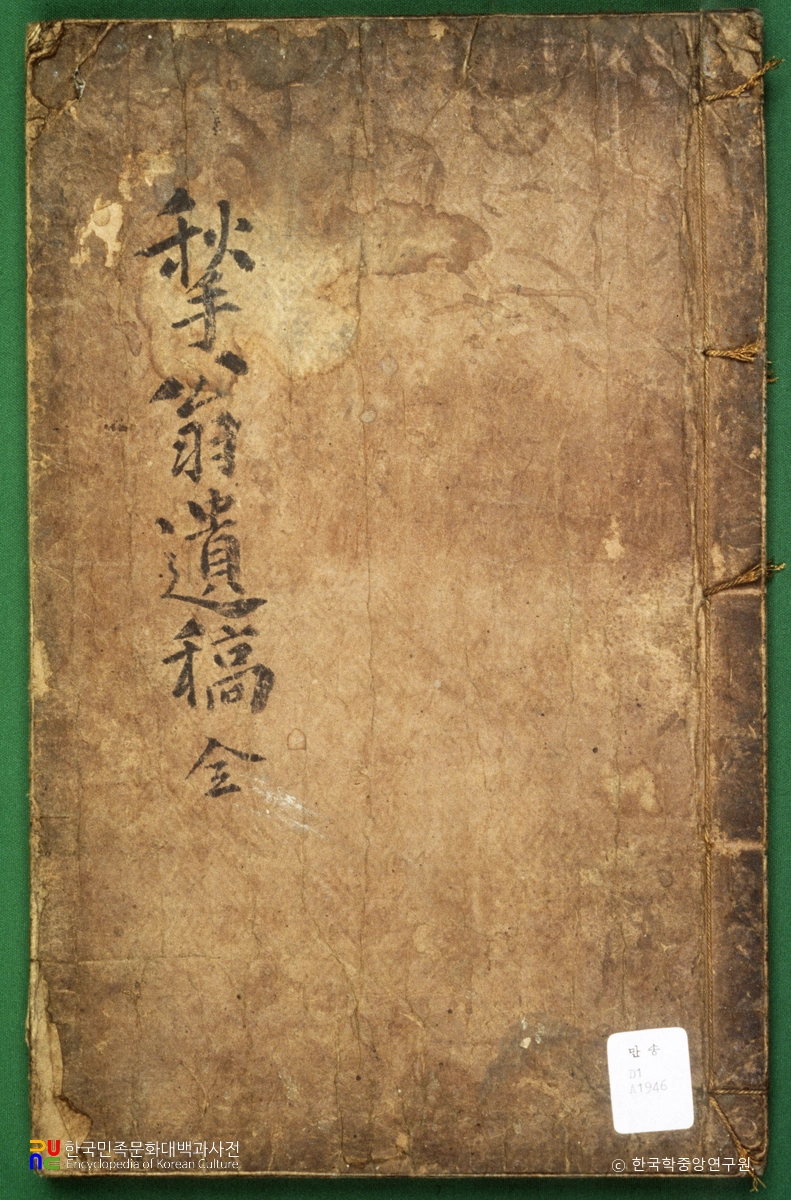 揫翁遺稿 全
만송
D1
A1946
한국민족문화대백과사전
Encyclopedia of Korean Culture
© 한국학중앙연구원